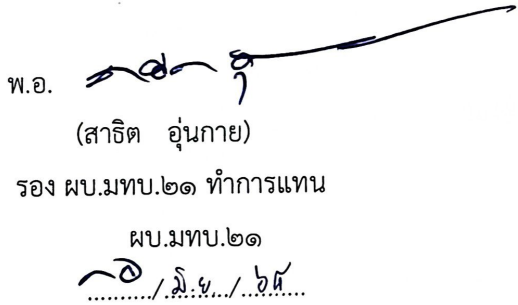 พ.อ.
(สาธิต อุ่นกาย)
รอง ผบ.มทบ.๒๑ ทำการแทน
ผบ.มทบ.๒๑
/ มิ.ย. /